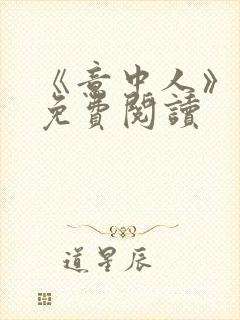 《意中人》
免費閱讀
道星辰